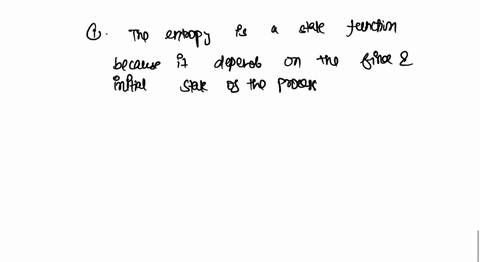 ①. The entropy is a state function
because it depends on the final &
initial state of the process